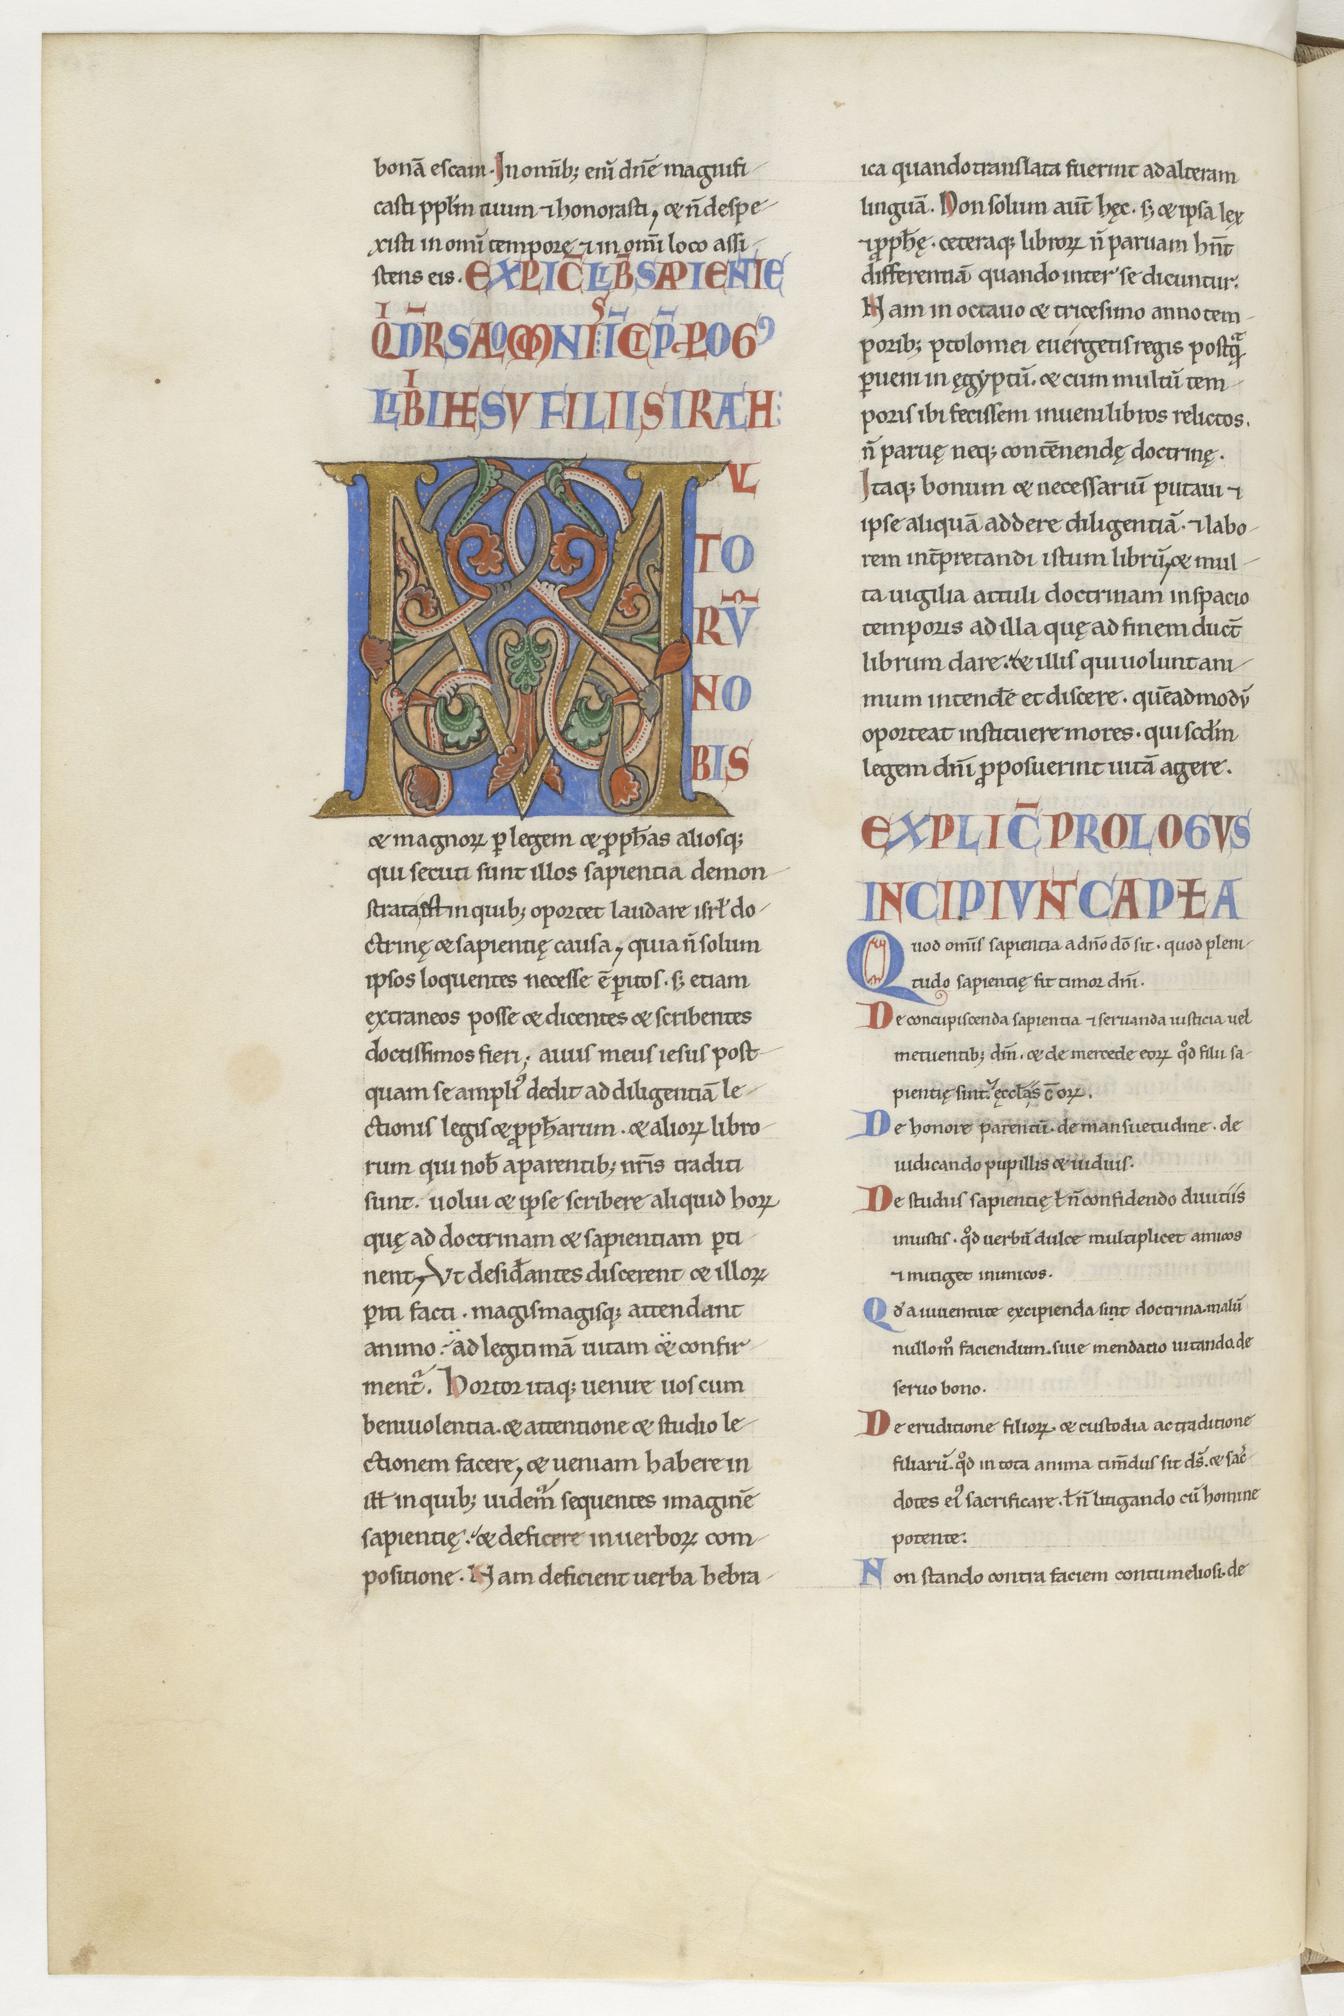 bonā escam. In omib; eni dn̄e magnifi
casti pplm tuum ⁊ honorasti, & n̄ despe
xisti in omī tempore ⁊ in omī loco assi
stens eis. EXPLIC̄ LIB̄ SAPIENTIE
SALOMONIS INCIPIT PLOGꝰ
LIBI IHESV FILII SIRAH:
MVL
TO
RV̄
NO
BIS
& magnoꝝ ꝑ legem & ꝓph̄as aliosq;
qui secuti sunt illos sapientia demon
strata est in quib; oportet laudare isrl̄ do
ctrinę & sapientię causa, quia n̄ solum
ipsos loquentes necesse ē ꝑitos. s; etiam
extraneos posse & dicentes & scribentes
doctissimos fieri; auus meus iesus post
quam se ampliꝰ dedit ad diligentiā le
ctionis legis & ꝓph̄arum. & alioꝝ libro
rum qui nob̄ a parentib; nr̄is traditi
sunt. uolui & ipse scribere aliquid hoꝝ
quę ad doctrinam & sapientiam ꝑti
nent, Vt desid̄antes discerent & illoꝝ
ꝑiti facti. magis magisq; attendant
animo. ad legitimā uitam & confir
ment̄. Hortor itaq; uenire uos cum
beniuolentia. & attentione & studio le
ctionem facere, & ueniam habere in
ill̄ in quib; uidem̄ sequentes imaginē
sapientię. & deficere in uerboꝝ com
positione. Nam deficient uerba hebra
ica quando translata fuerint ad alteram
linguā. Non solum aut̄ hęc. s; & ipsa lex
⁊ ꝓph̄ę. ceteraq; libroꝝ n̄ paruam hn̄t
differentiā quando inter se dicuntur.
Nam in octauo & tricesimo anno tem
porib; ptolomei euergetis regis postq̄
ꝑueni in ęgyptū. & cum multū tem
poris ibi fecissem inueni libros relictos.
n̄ paruę neq; contēnendę doctrinę.
Itaq; bonum & necessariū putaui ⁊
ipse aliquā addere diligentiā. ⁊ labo
rem int̄pretandi istum librū, & mul
ta uigilia attuli doctrinam in spacio
temporis ad illa quę ad finem duct̄
librum dare. & illis qui uolunt ani
mum intend̄e et discere. quēadmodū
oporteat instituere mores. qui scd̄m
legem dn̄i ꝓposuerint uitā agere.
EXPLIC̄ PROLOGVS
INCIPIVNT CAPŁA
Quod omis sapientia a dn̄o dō sit. quod pleni
tudo sapientię sit timor dn̄i.
De concupiscenda sapientia ⁊ seruanda iusticia uel
metuentib; dm̄. & de mercede eoꝝ q̊d filii sa
pientię sunt. ęccl̄as c̄ oꝝ.
De honore parentū. de mansuetudine. de
iudicando pupillis & uiduis.
De studiis sapientię ł n̄ confidendo diuitiis
iniustis. q̊d uerbū dulce multiplicet amicos
⁊ mitiget inimicos.
Qd̄ a iuuentute excipienda sint doctrina. malū
nullom̊ faciendum. siue mendacio uitando. de
seruo bono.
De eruditione filioꝝ. & custodia ac traditione
filiarū. q̊d in tota anima tim̄dus sit ds̄. & sac̄
dotes eiꝰ sacrificare. ł n̄ litigando cū homine
potente.
Non stando contra faciem contumeliosi. de